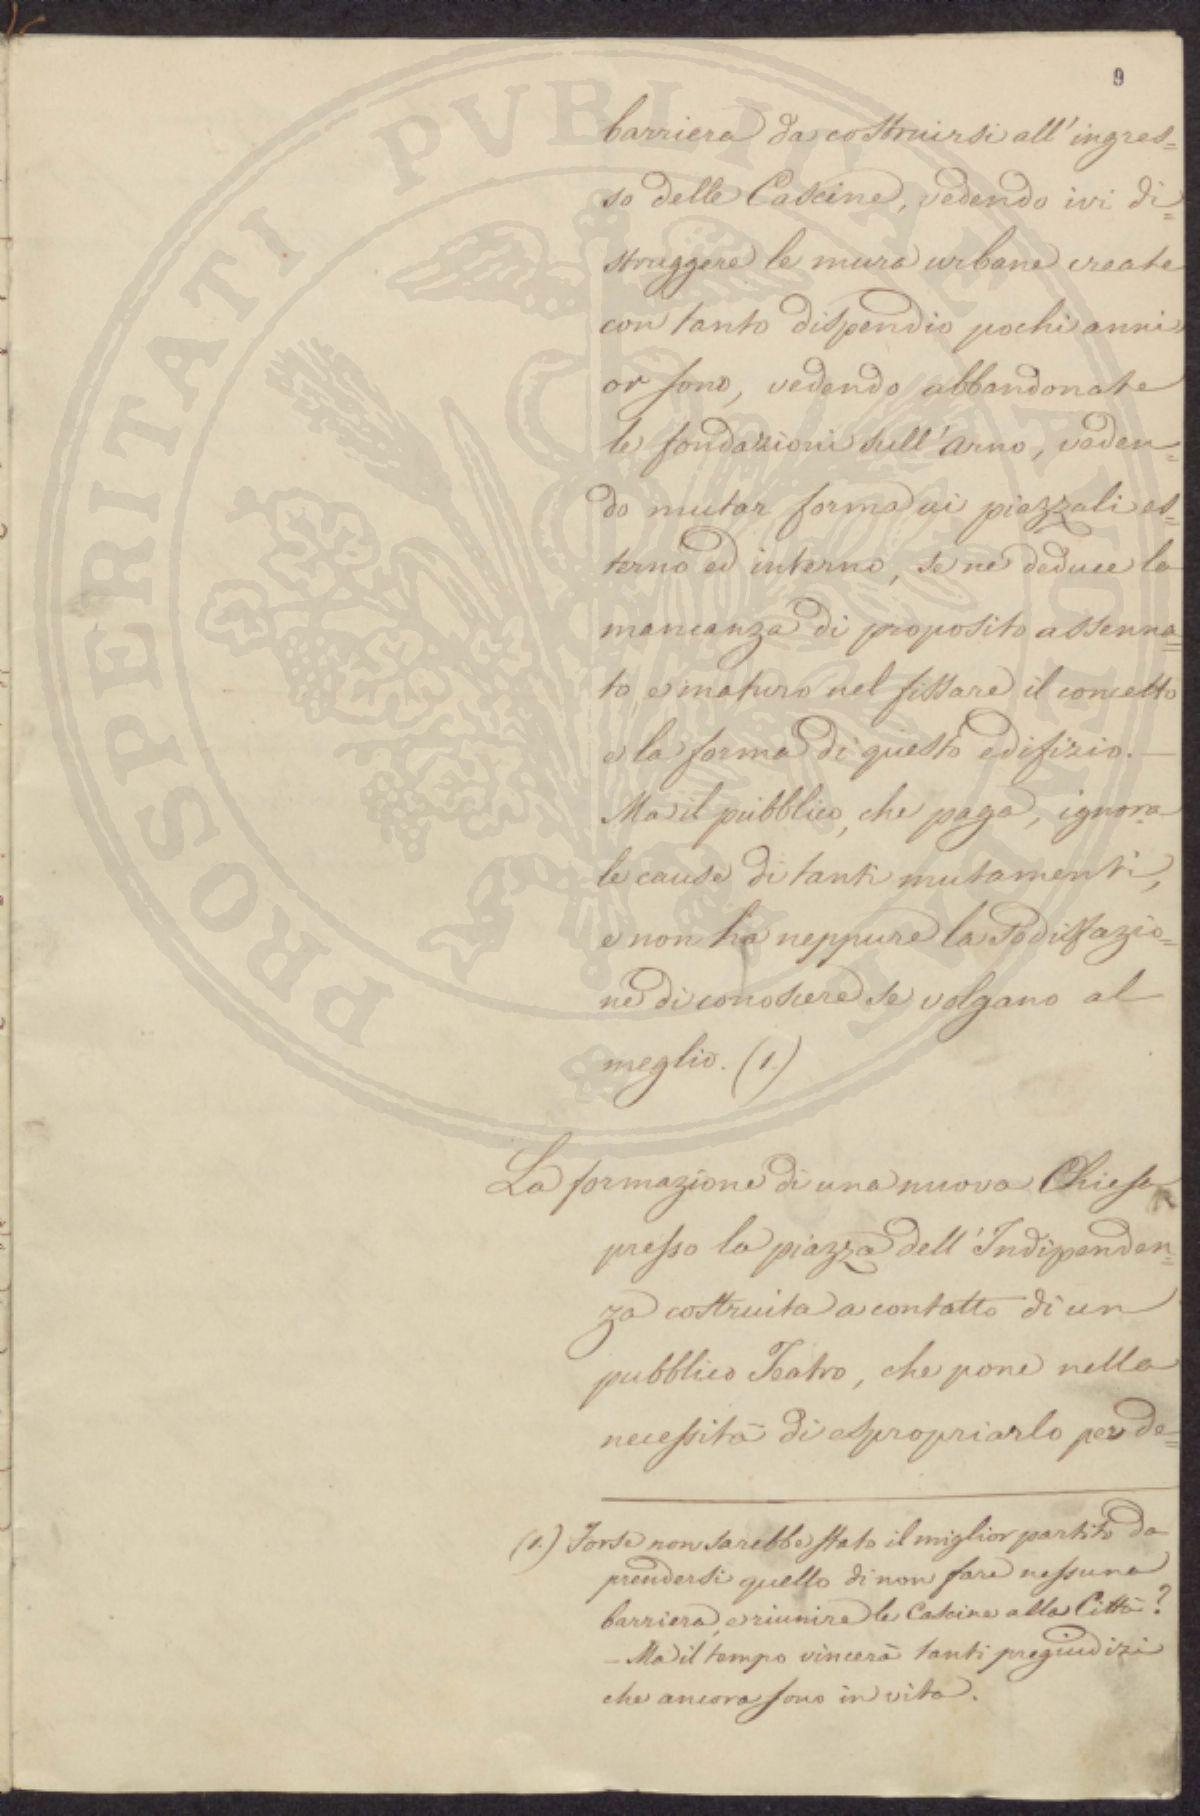 9
barriera da costruirsi all'ingres=
so delle Cascine, vedendo ivi di=
struggere le mura urbane create
con tanto dispendio pochi anni
or sono, vedendo abbandonate
le fondazioni sull'Arno, veden=
do mutar forma ai piazzali es=
terno ed interno, se ne deduce la
mancanza di proposito assenna=
to, e maturo nel fissare il concetto
e la forma di questo edifizio. —
Ma il pubblico, che paga, ignora
le cause di tanti mutamenti,
e non ha neppure la sodisfazio=
ne di conoscere se volgano al
meglio. (1.)
La formazione di una nuova Chiesa
presso la piazza dell'Indipenden=
za costruita a contatto di un
pubblico Teatro, che pone nella
necessità di espropriarlo per de=
(1.) Forse non sarebbe stato il miglior partito da
prendersi quello di non fare nessuna
barriera, e riunire le Cascine alla Città?
— Ma il tempo vincerà tanti pregiudizi
che ancora sono in vita.
PROSPERITATI PVBLICAE